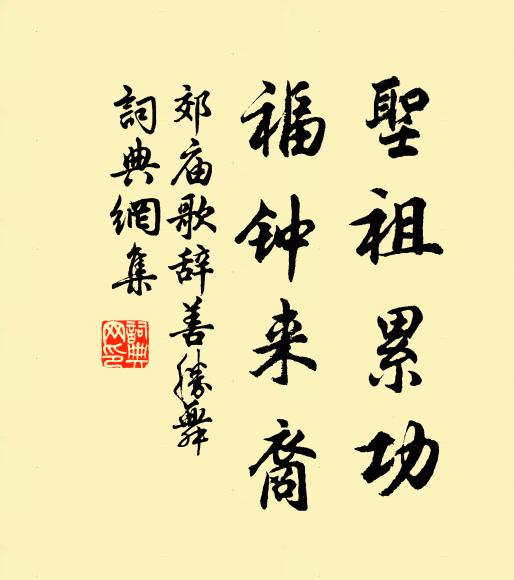 聖祖累功
福钟来裔
郊庙歌辞善勝舞
詞典網集
詞典网印